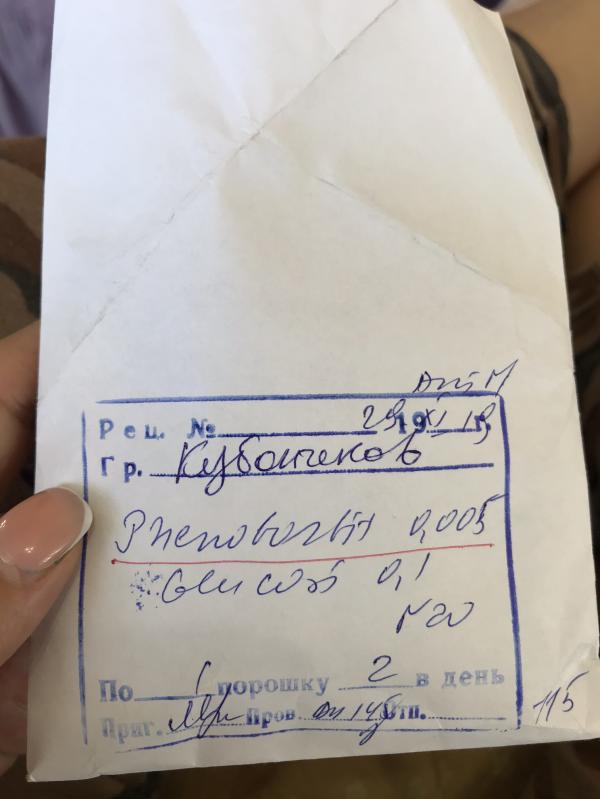 Рец. № 29 19 XI 19 г.
Гр. Кубанчеков
Phenobarbit 0,005
Glucosi 0,1
N20
По 1 порошку 2 в день
Приг. Пров Отп.
115